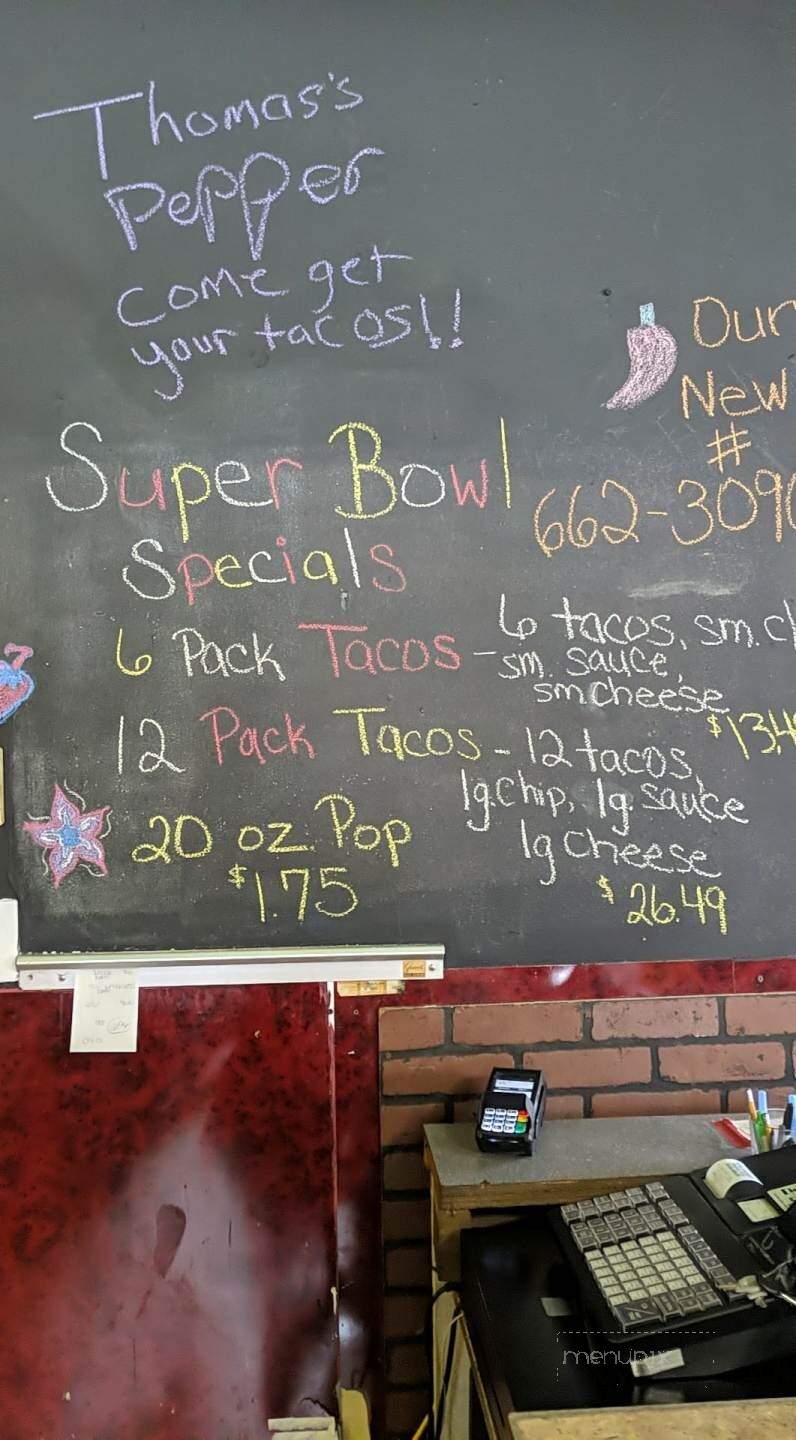 Thomas's
Pepper
come get
your tacos!!
Our
New
#
662-3090
Super Bowl
Specials
6 Pack Tacos - 6 tacos, sm. ch
sm. sauce,
sm cheese
$13,49
12 Pack Tacos - 12 tacos,
lg. chip, lg. sauce
lg cheese
$26.49
20 oz. Pop
$1.75
menupix